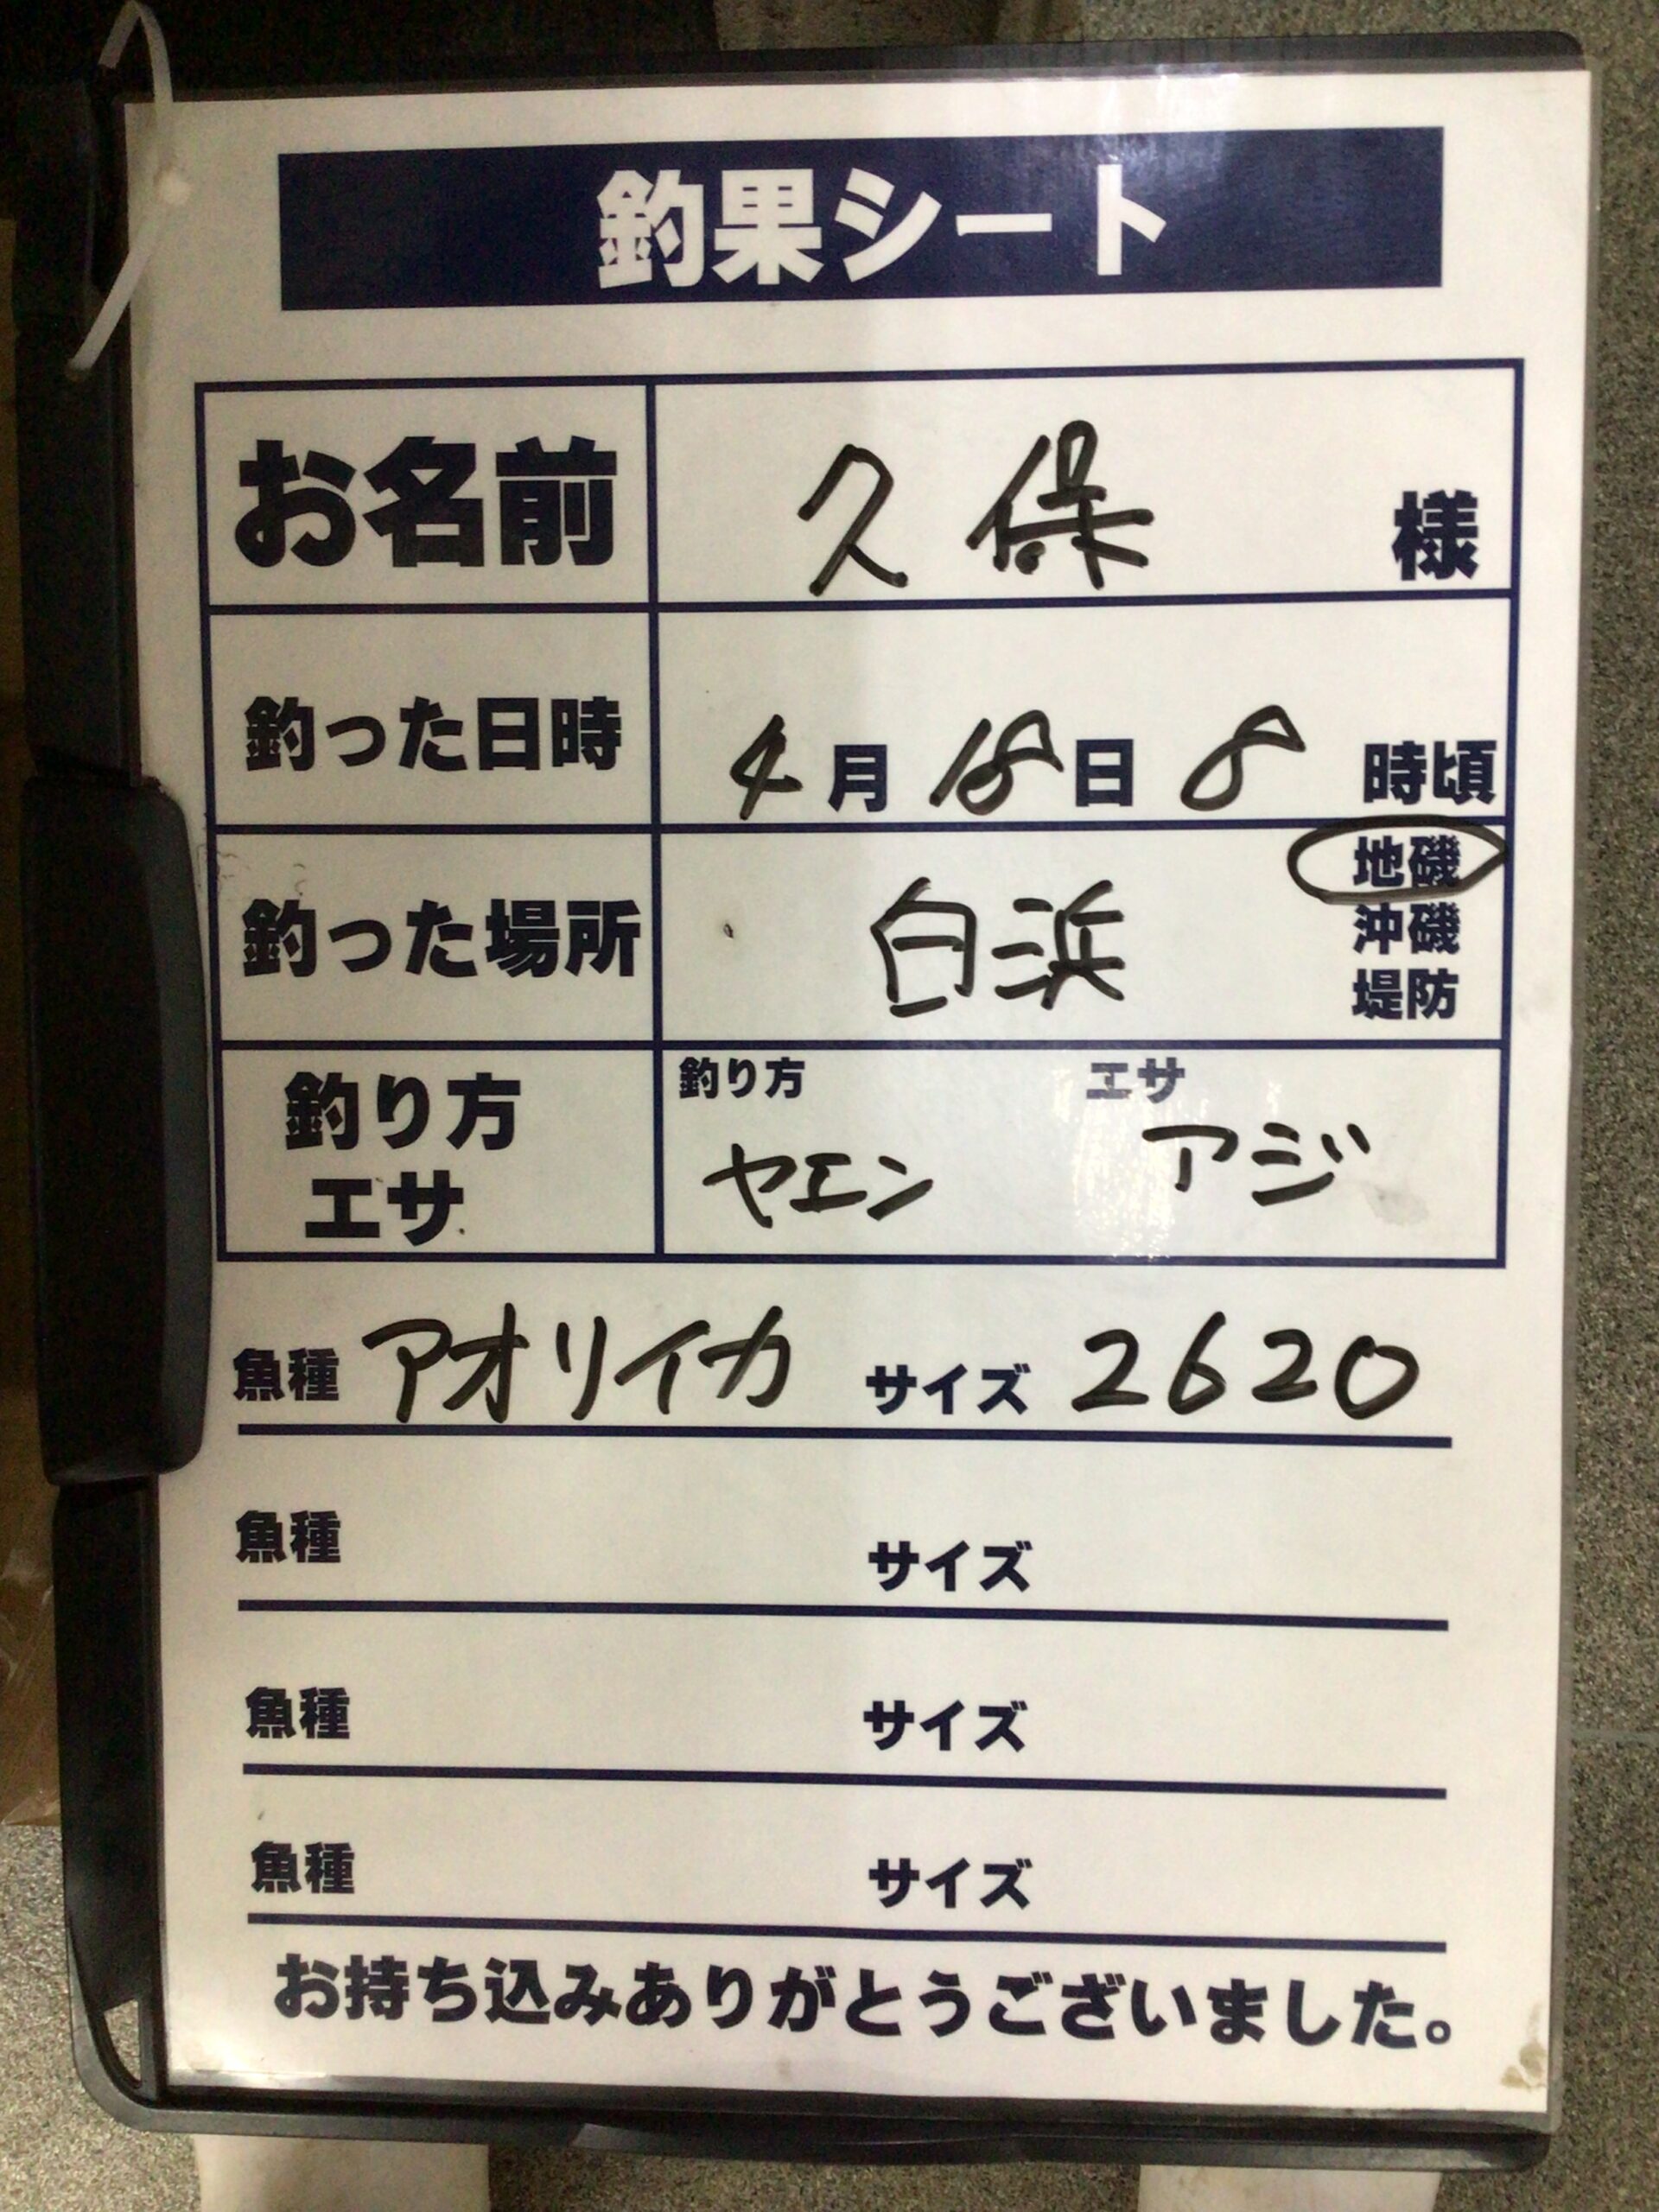 釣果シート
お名前 久保 様
釣った日時 4月18日8時頃
釣った場所 白浜 地磯
沖磯
堤防
釣り方 エサ
釣り方 ヤエン エサ アジ
魚種 アオリイカ サイズ 2620
魚種 サイズ
魚種 サイズ
魚種 サイズ
お持ち込みありがとうございました。